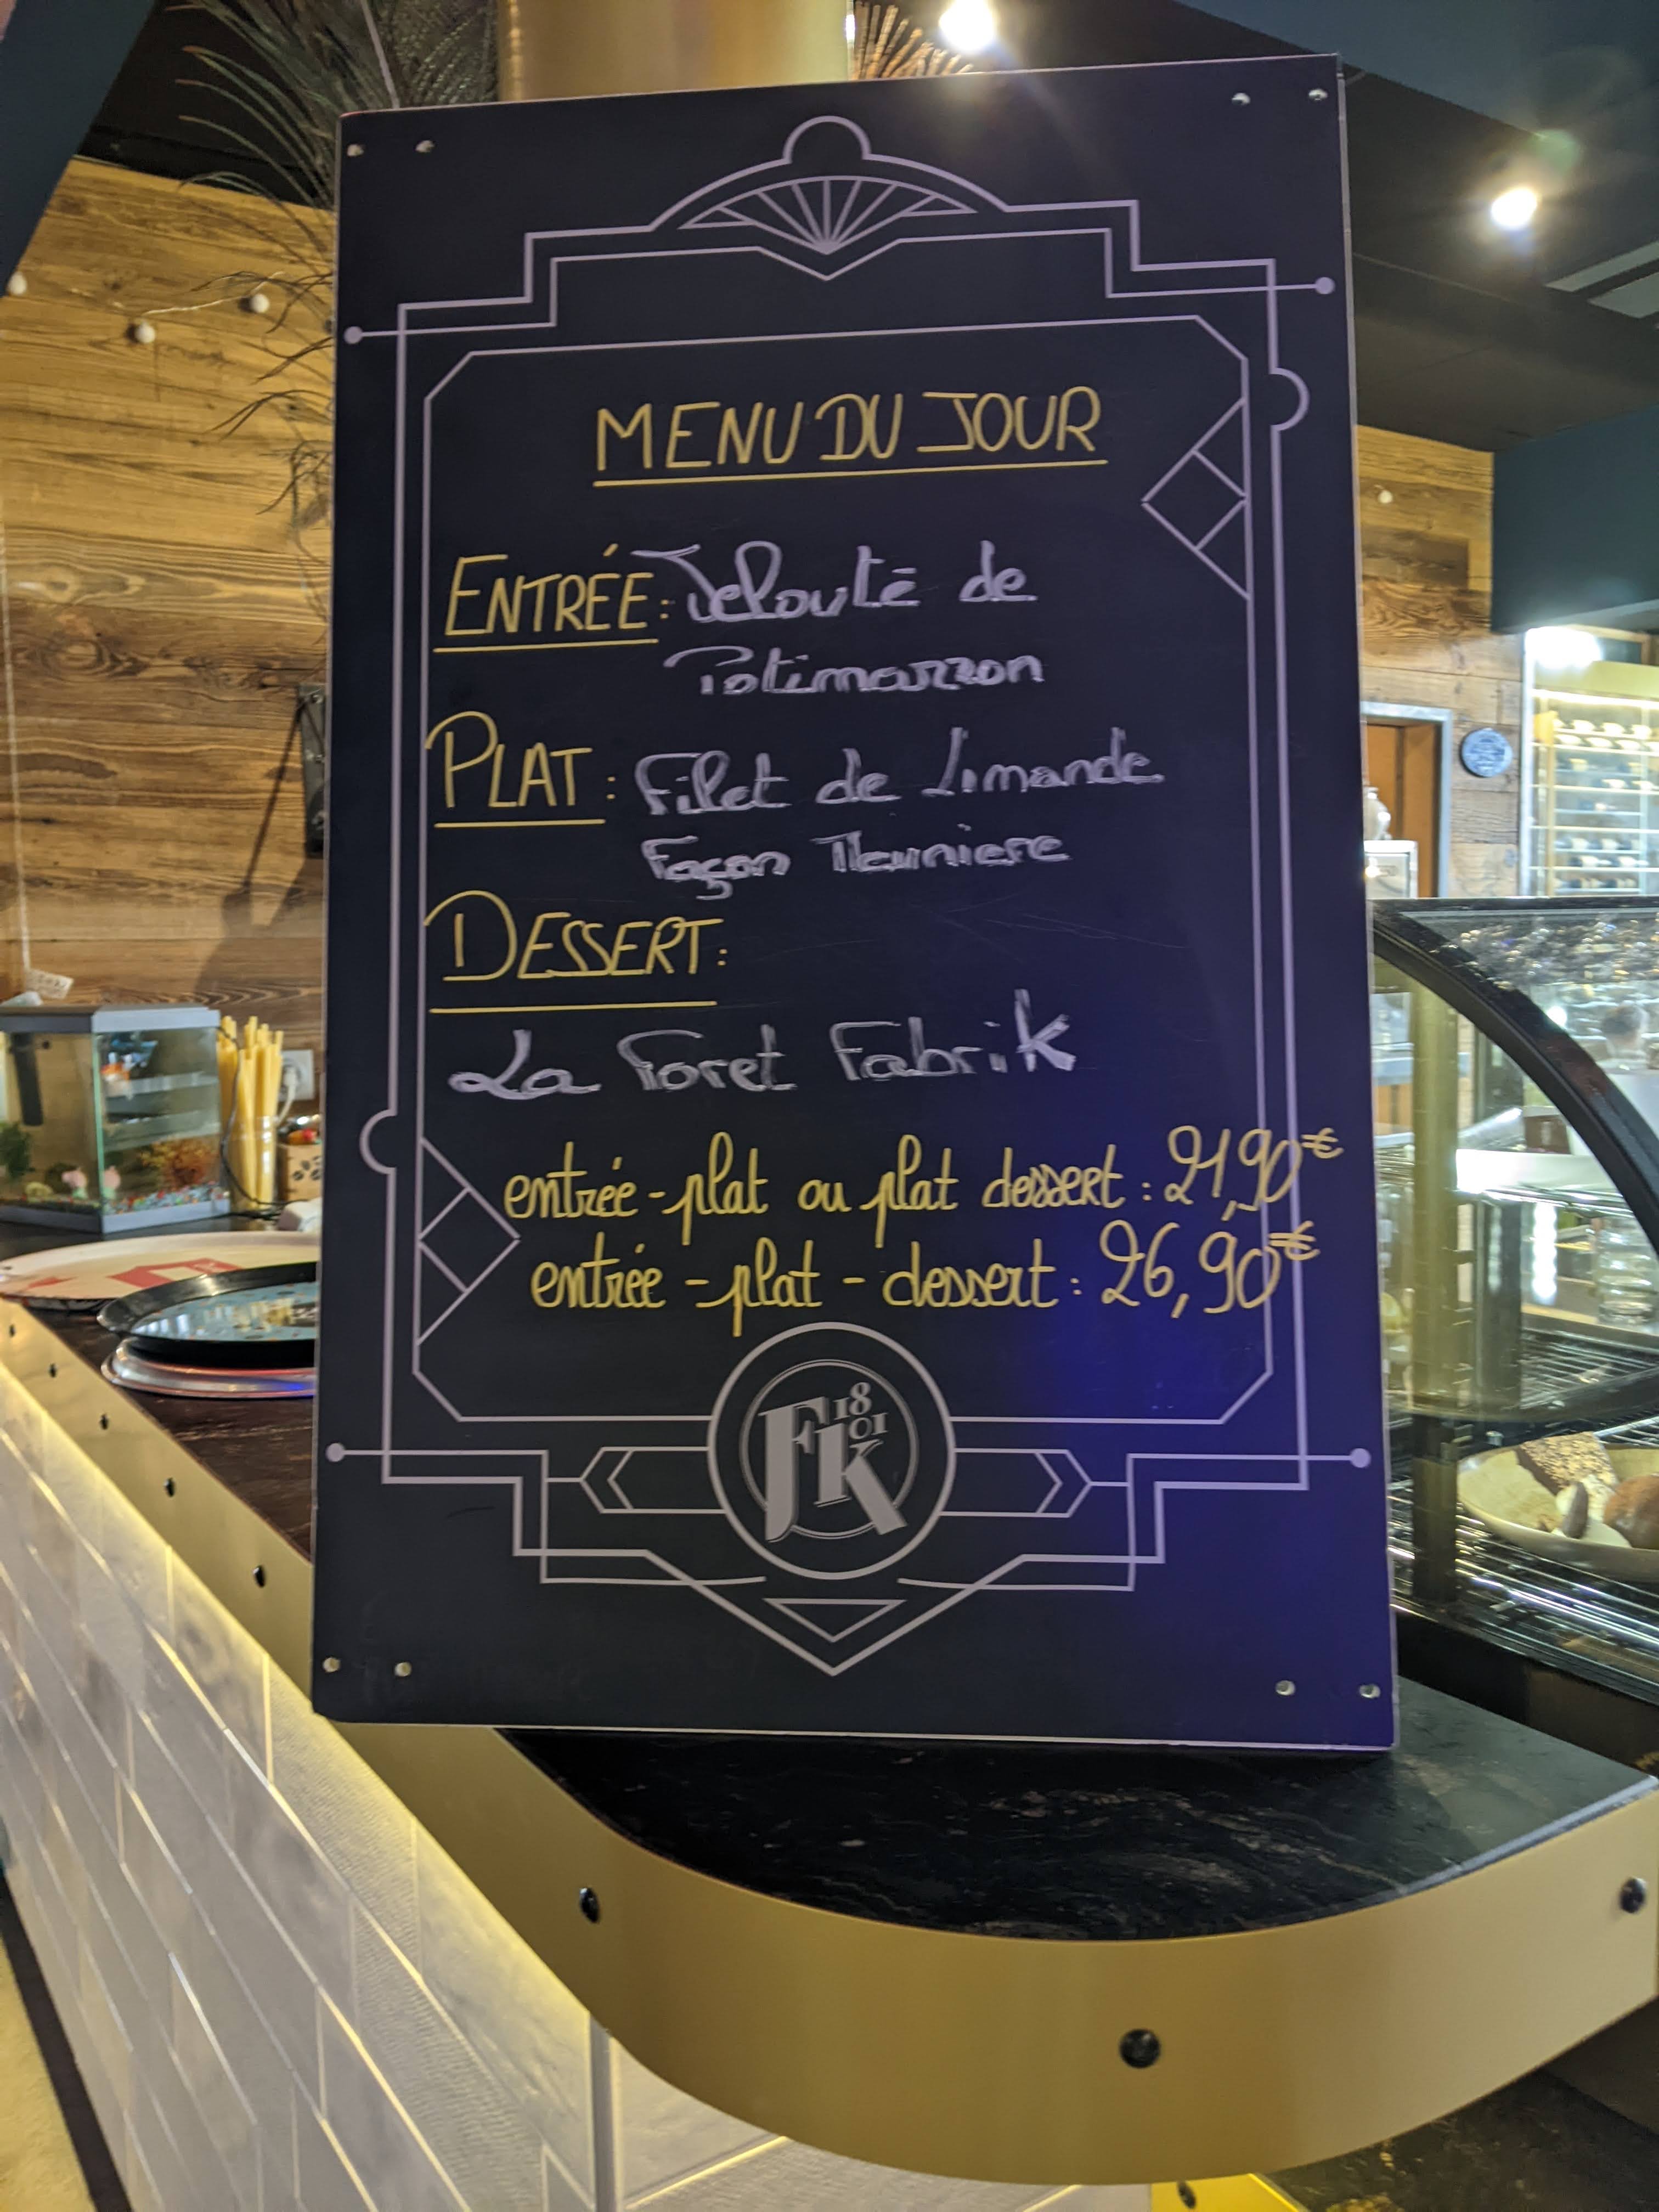 MENU DU JOUR
ENTRÉE: Velouté de
Potimarron
PLAT: Filet de Limande
Façon Meuniere
DESSERT:
La Foret Fabrik
entrée-plat ou plat dessert: 21,90€
entrée-plat-dessert: 26,90€
FK
18
01